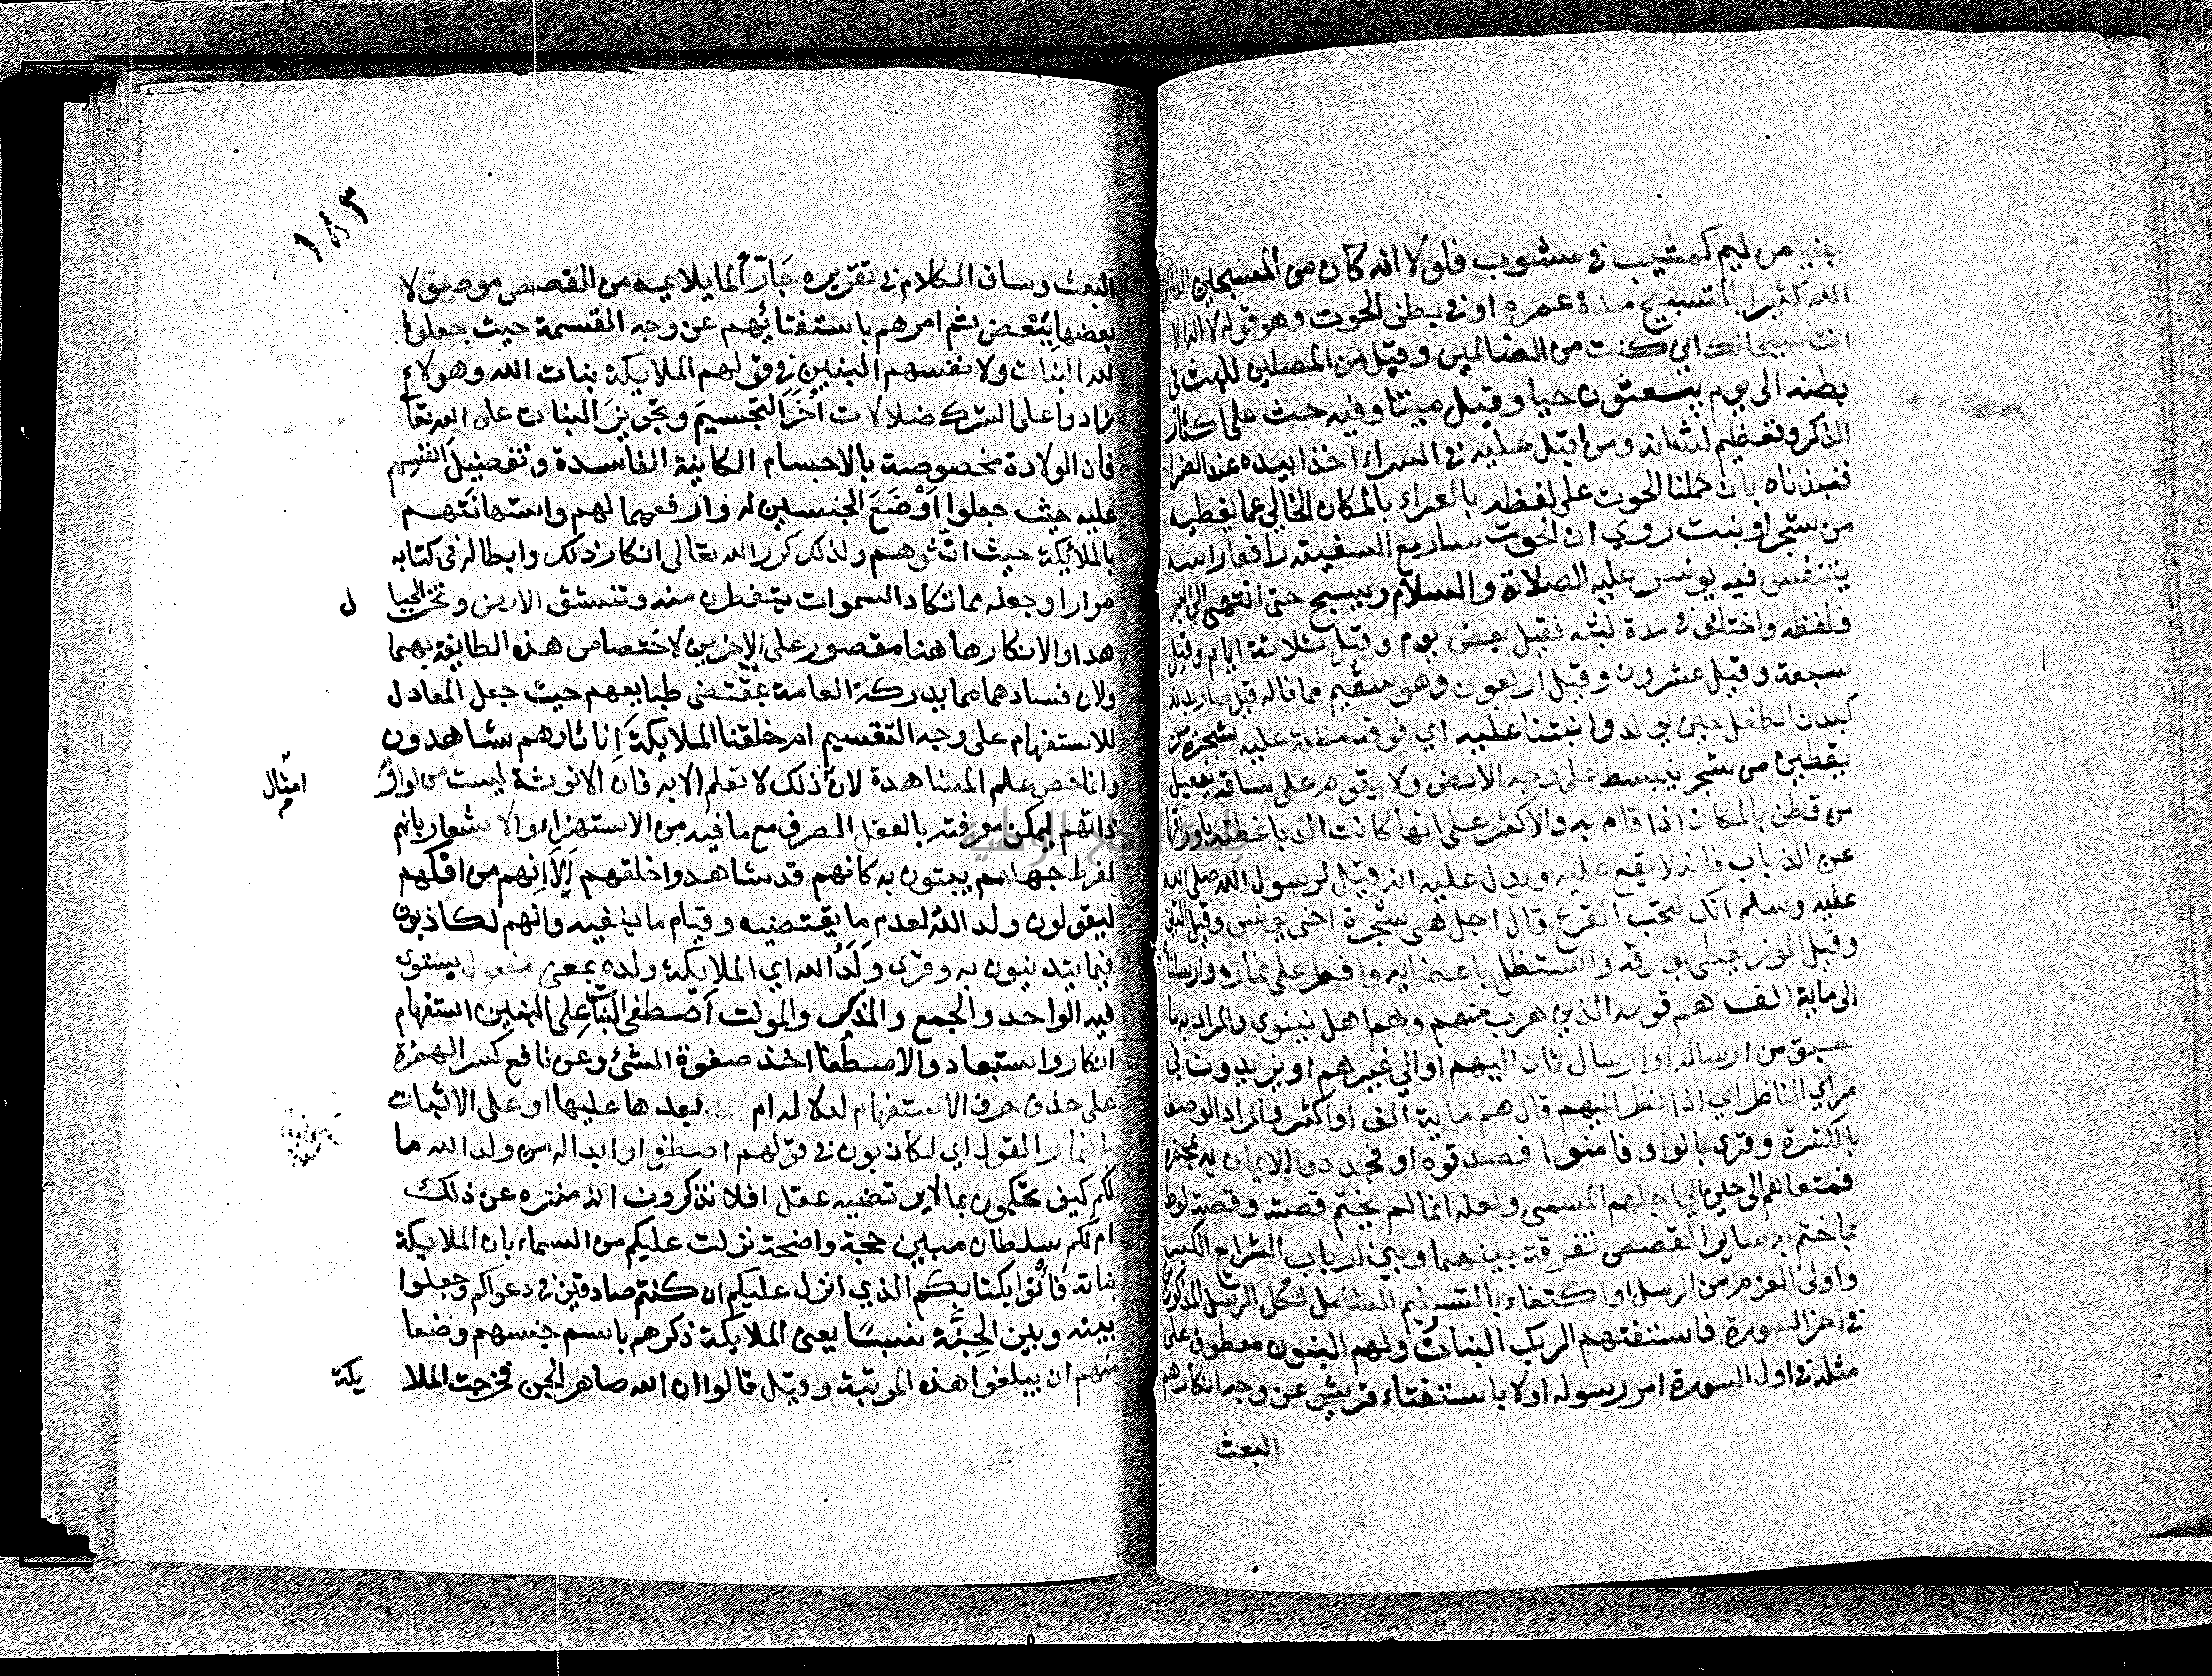 مبنيا من ليم كمشيب في مشوب فلولا انه كان من المسبحين الذاكرين
الله كثيرا بالتسبيح مدة عمره او في بطن الحوت وهو قوله لا اله الا
انت سبحانك اني كنت من الظالمين وقيل من المصلين للبث في
بطنه الى يوم يبعثون حيا وقيل ميتا وفيه حث على اكثار
الذكر وتعظيم لشانه ومن اقبل عليه في السراء اخذ بيده عند الضرا
فنبذناه بان حملنا الحوت على لفظه بالعراء بالمكان الخالي عما يغطيه
من شجر او نبت روي ان الحوت سار مع السفينة رافعا راسه
يتنفس فيه يونس عليه الصلاة والسلام ويسبح حتى انتهى الى البر
فلفظه واختلف في مدة لبثه فقيل بعض يوم وقيل ثلاثة ايام وقيل
سبعة وقيل عشرون وقيل اربعون وهو سقيم مما ناله قيل صار بدنه
كبدن الطفل حين يولد وانبتنا عليه اي فوقه مظلة عليه شجرة من
يقطين من شجر ينبسط على وجه الارض ولا يقوم على ساقه يفعيل
من قطن بالمكان اذا قام به والاكثر على انها كانت الدبا غطته باوراقها
عن الذباب فانه لا يقع عليه ويدل عليه انه قيل لرسول الله صلى الله
عليه وسلم انك لتحب القرع قال اجل هي شجرة اخي يونس وقيل التين
وقيل الموز يغطى بورقه واستظل باغصانه وافطر على ثماره وارسلناه
الى ماية الف هم قومه الذين هرب منهم وهم اهل نينوى والمراد به ما
سبق من ارساله او ارسال ثان اليهم او الي غيرهم او يزيدون في
مراي الناظر اي اذا نظر اليهم قال هم ماية الف او اكثر والمراد الوصف
بالكثرة وقرى بالواو فامنوا فصدقوه او فجددوا الايمان به بمحضره
فمتعناهم الى حين الي اجلهم المسمى ولعله انما لم يختم قصته وقصة لوط
بما ختم به سائر القصص تفرقة بينهما وبين ارباب الشرايع الكبر
واولى العزم من الرسل او اكتفاء بالتسليم الشامل لكل الرسل المذكورين
في اخر السورة فاستفتهم الربك البنات ولهم البنون معطوف على
مثله في اول السورة امر رسوله اولا باستفتاء قريش عن وجه انكارهم
البعث
١٨٣
البعث وساق الكلام في تقريره جارّاً لما يلايمه من القصص موصولا
بعضها ببعض ثم امرهم باستفتائهم عن وجه القسمة حيث جعلوا
لله البنات ولانفسهم البنين في قولهم الملايكة بنات الله وهولاء
زادوا على الشرك ضلالات أخر التجسيم وتجويز البنات على الله تعا
فان الولادة مخصوصة بالاجسام الكاينة الفاسدة وتفضيل انفسهم
عليه حيث جعلوا أوْضَعَ الجنسين له وارفعهما لهم واستهانتهم
بالملائكة حيث انّثوهم ولذلك كرر الله تعالى انكار ذلك وابطاله في كتابه
مرارا وجعله مما تكاد السموات يتفطرن منه وتنشق الارض وتخر الجبا
ل
هدا والانكار هاهنا مقصور على الاخرين لاختصاص هذه الطايفة بهما
ولان فسادهما مما يدركه العامة بمقتضى طبايعهم حيث جعل المعادل
للاستفهام على وجه التقسيم ام خلقنا الملايكة إناثا وهم شاهدون
وانما خص علم المشاهدة لأن ذلك لا تعلم الا به فان الانوثة ليست من لوازم
امثال
ذاتهم ليمكن معرفته بالعقل الصرف مع ما فيه من الاستهزاء والاشعار بانهم
لفرط جهلهم يبتون به كانهم قد شاهدوا خلقهم ألا إنهم من افكهم
ليقولون ولد الله لعدم ما يقتضيه وقيام ما ينفيه وانهم لكاذبون
فيما يتدينون به وقرى وَلَدُ الله اي الملايكة ولده بمعنى مفعول يستوى
فيه الواحد والجمع والمذكر والمونث أصطفى البنات على البنين استفهام
انكار واستبعاد والاصطفا اخذ صفوة الشئ وعن نافع كسر الهمزة
على حذف حرف الاستفهام لدلالة ام بعدها عليها او على الاثبات
باضمار القول اي لكاذبون في قولهم اصطفى او ابداله من ولد الله ما
لكم كيف تحكمون بما لا يرتضيه عقل افلا تذكرون انه منزه عن ذلك
ام لكم سلطان مبين حجة واضحة نزلت عليكم من السماء بان الملايكة
بناته فأتوا بكتابكم الذي انزل عليكم ان كنتم صادقين في دعواكم وجعلوا
بينه وبين الجِنَّة نسبًا يعنى الملايكة ذكرهم باسم جنسهم وضعا
منهم ان يبلغوا هذه المرتبة وقيل قالوا ان الله صاهر الجن فخرجت الملا
يكة